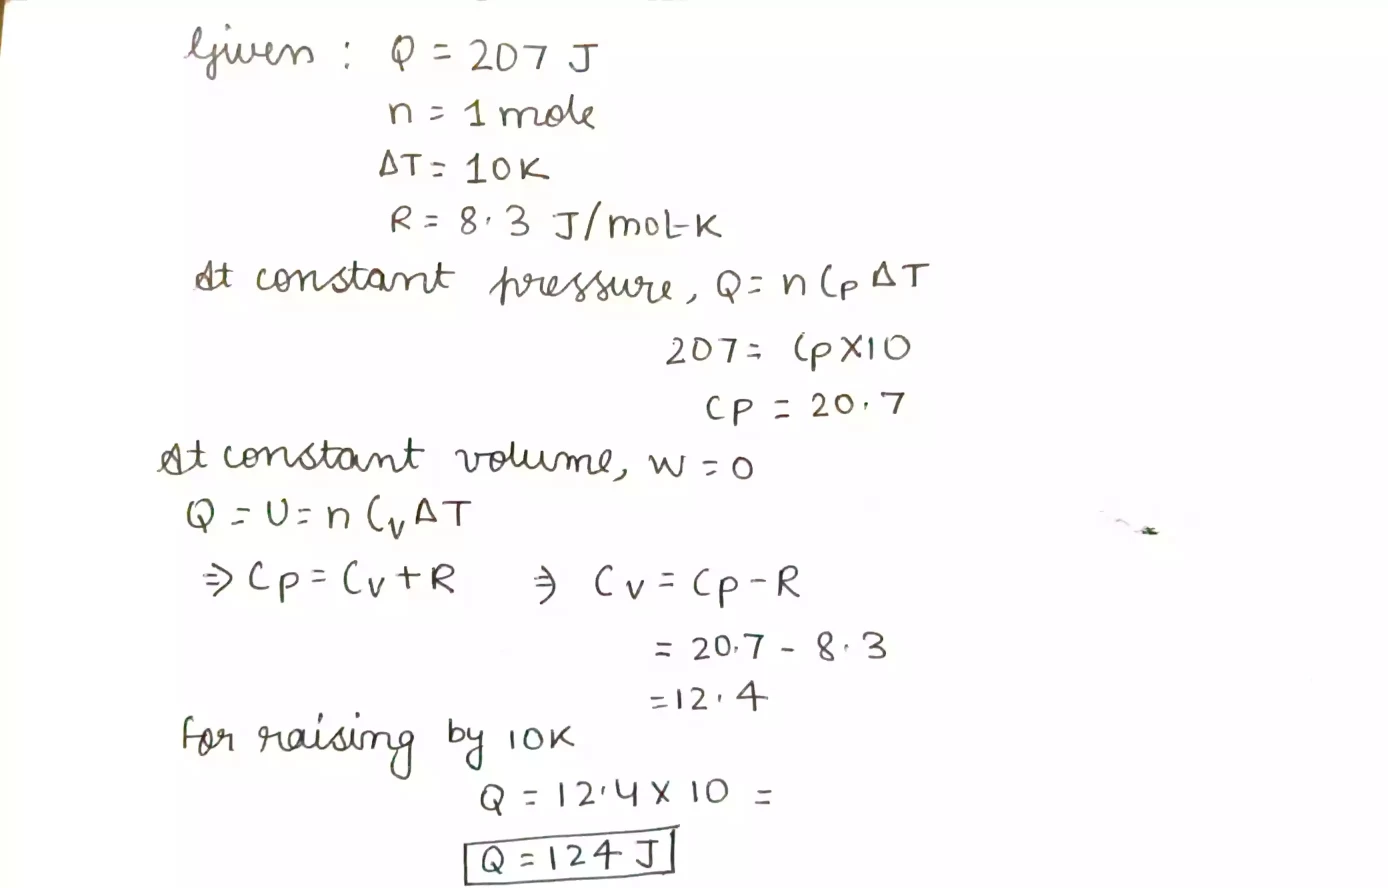 Given : Q = 207 J
n = 1 mole
ΔT = 10K
R = 8.3 J/mol-K
At constant pressure, Q = n Cp ΔT
207 = Cp×10
CP = 20.7
At constant volume, W = 0
Q = U = n Cv ΔT
⇒ Cp = Cv + R ⇒ Cv = Cp - R
= 20.7 - 8.3
= 12.4
for raising by 10K
Q = 12.4 × 10 =
Q = 124 J